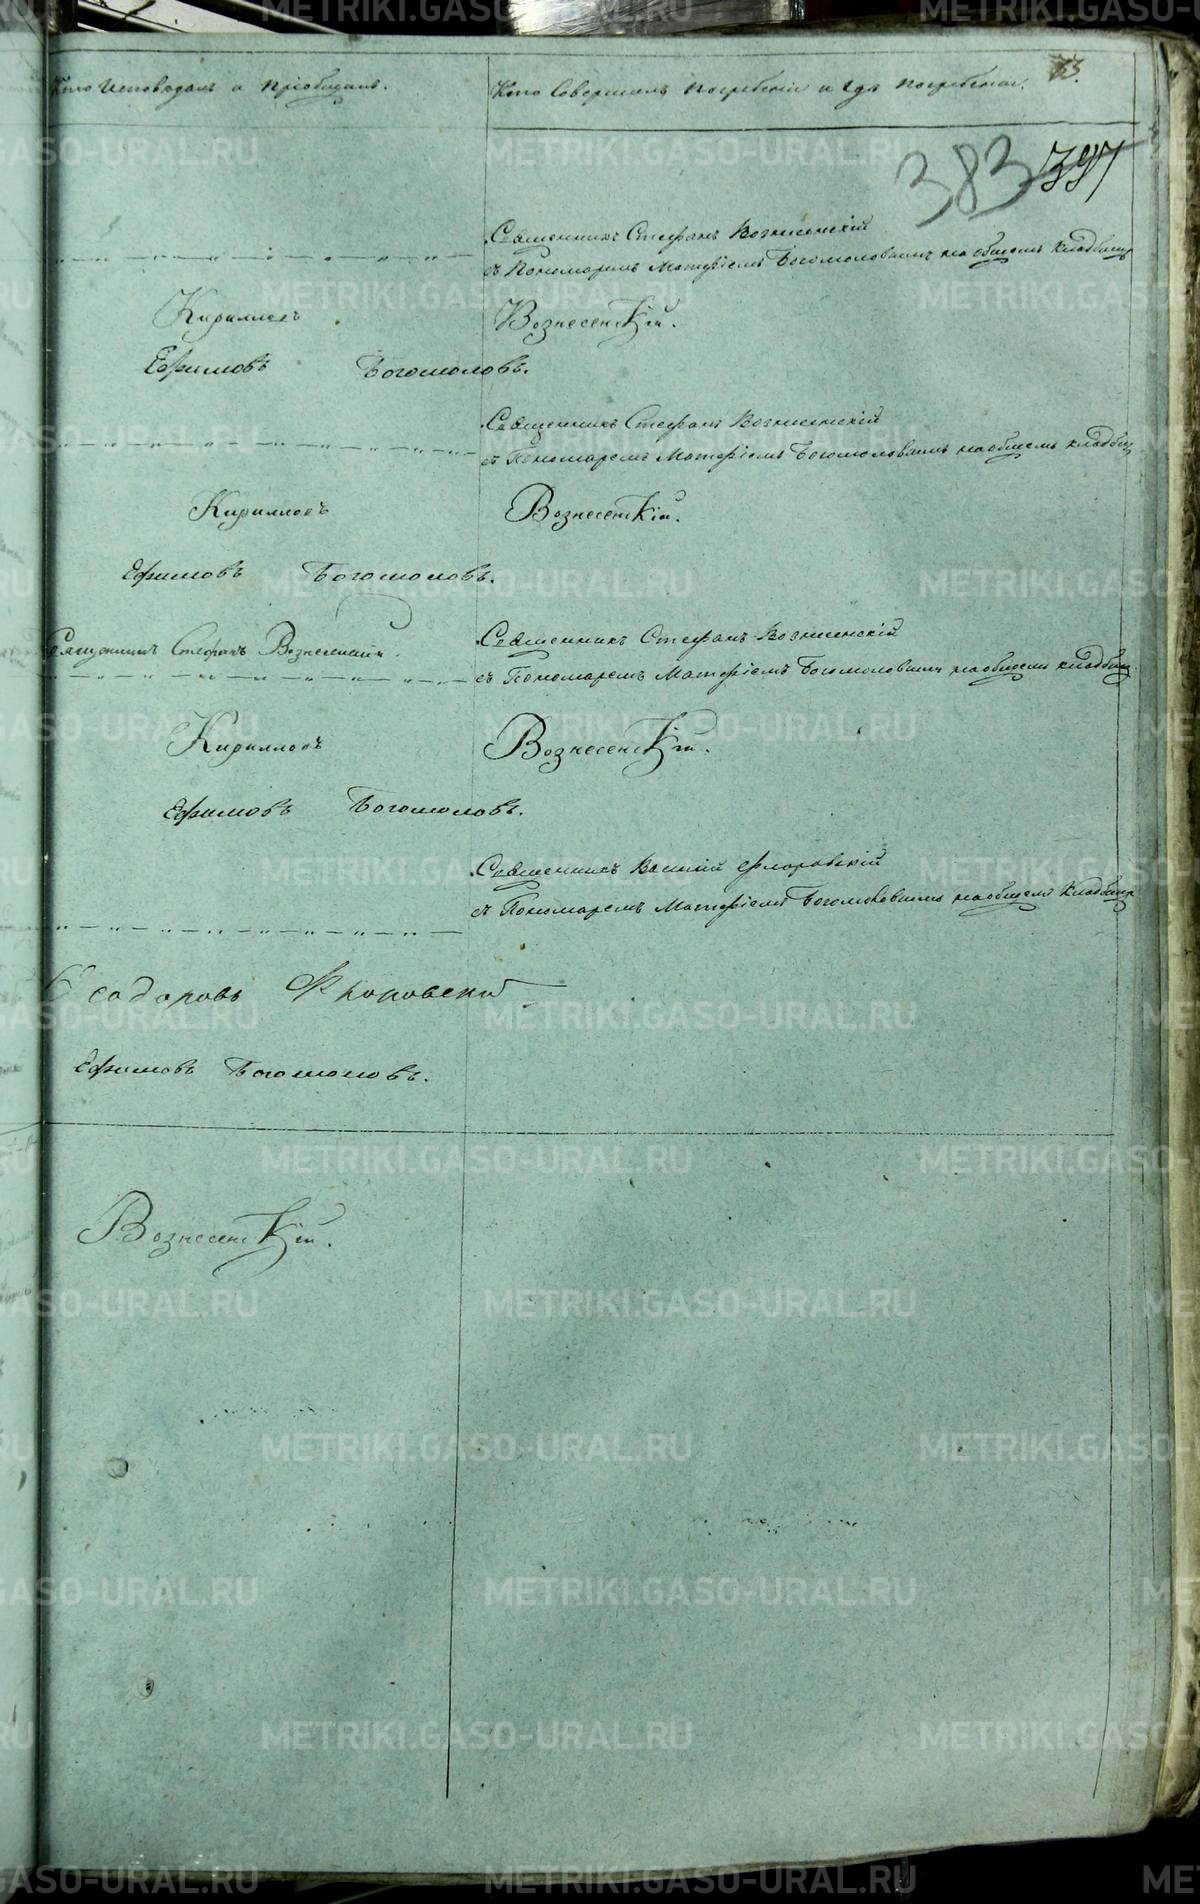 Кто Исповедалъ и Приобщалъ.
Кто Совершилъ Погребенiе и Где Погребены.
383 397
Священникъ Стефанъ Вознесенскiй
съ Пономаремъ Матфiемъ Богомоловымъ на общемъ Кладбищѣ
Кирилловъ Вознесенскiй.
Ефимовъ Богомоловъ.
Священникъ Стефанъ Вознесенскiй
съ Пономаремъ Матфiемъ Богомоловымъ на общемъ кладбищѣ
Кирилловъ Вознесенскiй.
Ефимовъ Богомоловъ.
Священникъ Стефанъ Вознесенскiй.
Священникъ Стефанъ Вознесенскiй
съ Пономаремъ Матфiемъ Богомоловымъ на общемъ кладбищѣ
Кирилловъ Вознесенскiй.
Ефимовъ Богомоловъ.
Священникъ Василiй Флоровскiй
съ Пономаремъ Матфiемъ Богомоловымъ на общемъ Кладбищѣ
Ѳеодоровъ Флоровскiй
Ефимовъ Богомоловъ.
Вознесенскiй.
METRIKI.GASO-URAL.RU